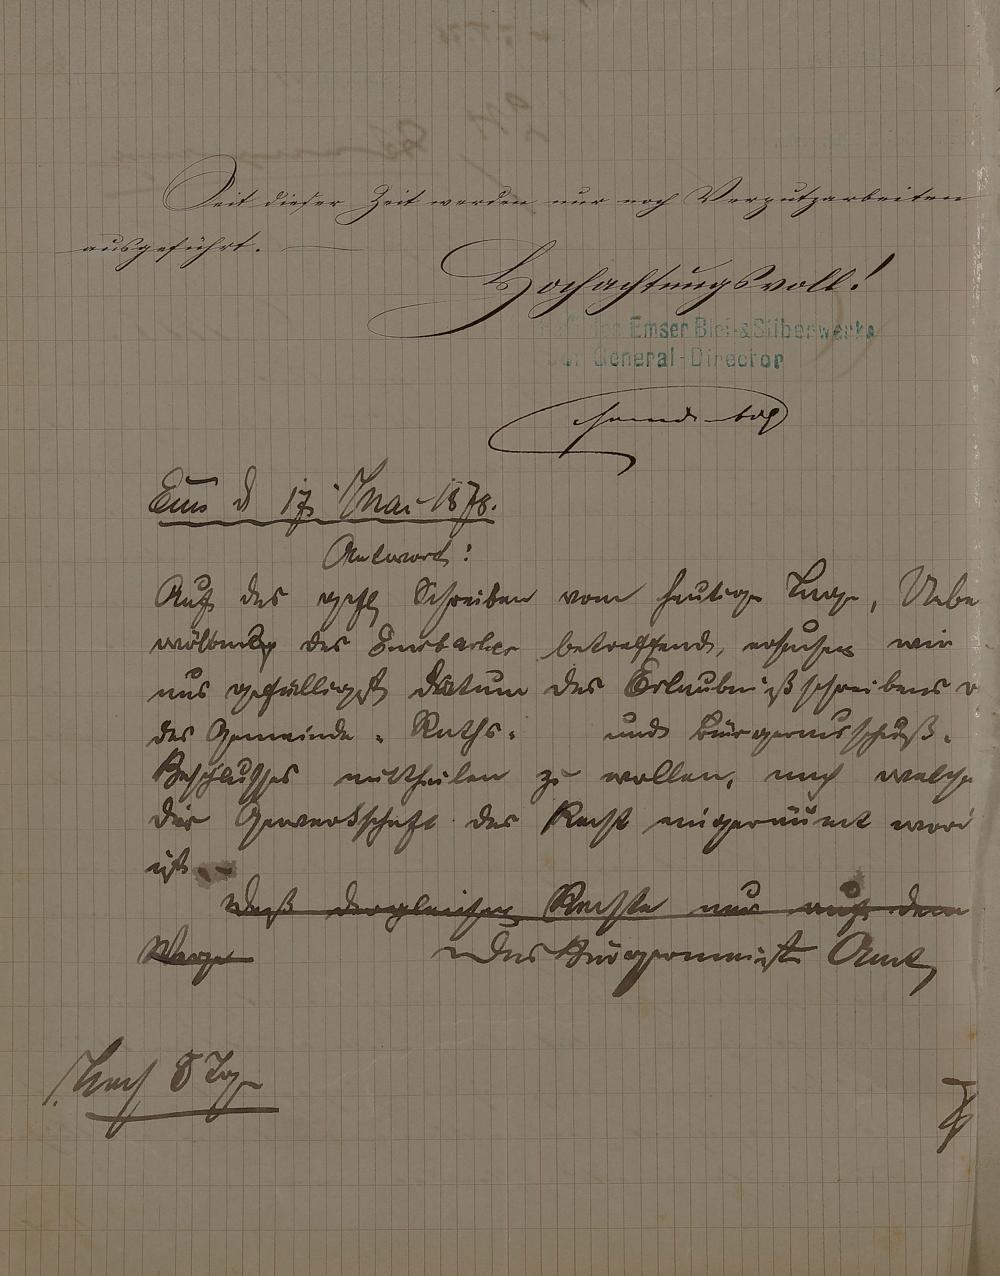 Seit dieser Zeit werden nur noch Verputzarbeiten
ausgeführt.
Hochachtungsvoll!
Emser Blei- & Silberwerks
Der General-Director
Ems d 17 Mai 1878.
Antwort:
Auf das gefl Schreiben vom heutige Tage, Uebe
wölbung des Emsbaches betreffend, ersuchen wir
uns gefälligst Datum des Erlaubnißschreibens
des Gemeinde-Raths- und Bürgerausschuß-
Beschlusses mittheilen zu wollen, nach welche
der Gewerkschaft das Recht eingeräumt word
ist.
daß dergleichen Rechte nur auf dem
Wege
Das Bürgermeister Amt
Nach 8 Tag